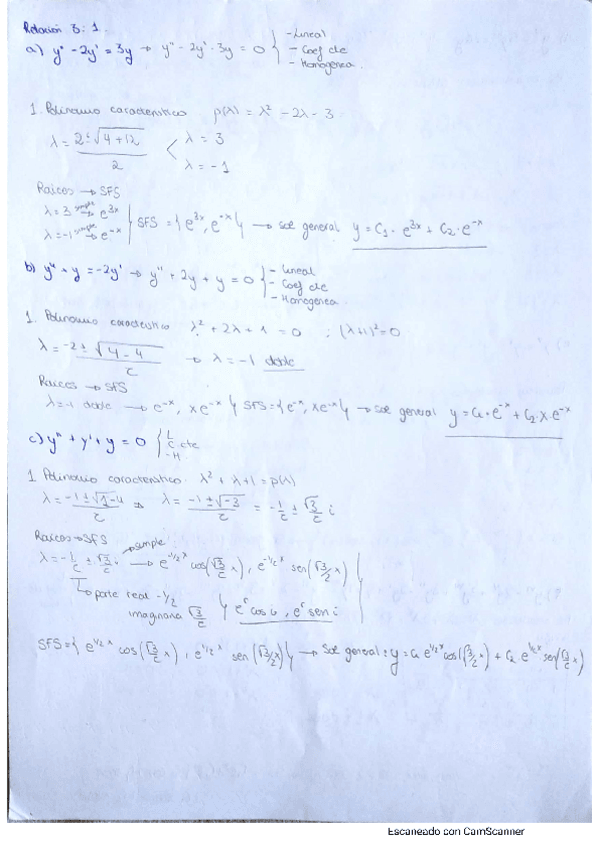 Relación 3: 1.
a) y'' - 2y' = 3y → y'' - 2y' - 3y = 0 { - Lineal
- Coef cte
- Homogénea.
1. Polinomio característico p(λ) = λ² - 2λ - 3
λ = (2 ± √(4 + 12)) / 2 < λ = 3
λ = -1
Raíces → SFS
λ = 3 simple → e^(3x)
λ = -1 simple → e^(-x) } SFS = { e^(3x), e^(-x) } → sol general y = C₁ · e^(3x) + C₂ · e^(-x)
b) y'' + y = -2y' → y'' + 2y + y = 0 { - Lineal
- Coef cte
- Homogénea.
1. Polinomio característico λ² + 2λ + 1 = 0 ; (λ+1)² = 0
λ = (-2 ± √(4 - 4)) / 2 → λ = -1 doble
Raíces → SFS
λ = -1 doble → e^(-x), x e^(-x) } SFS = { e^(-x), x e^(-x) } → sol general y = C₁ · e^(-x) + C₂ · x · e^(-x)
c) y'' + y' + y = 0 { L
C. cte
- H.
1. Polinomio característico λ² + λ + 1 = p(λ)
λ = (-1 ± √(1 - 4)) / 2 ⇒ λ = (-1 ± √-3) / 2 = -1/2 ± √3/2 i
Raíces → SFS
λ = -1/2 ± √3/2 i → simple → e^(-1/2 x) cos(√3/2 x), e^(-1/2 x) sen(√3/2 x)
→ parte real -1/2
imaginaria √3/2 } e^r cos i, e^r sen i
SFS = { e^(1/2 x) cos(√3/2 x), e^(1/2 x) sen(√3/2 x) } → Sol general: y = C₁ e^(1/2 x) cos(√3/2 x) + C₂ · e^(1/2 x) sen(√3/2 x)
Escaneado con CamScanner